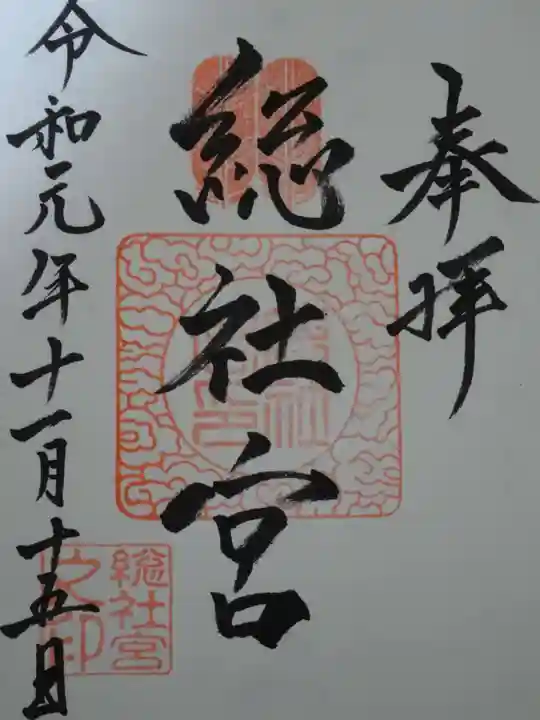 奉拝
総社宮
令和元年十一月十五日
総社宮
之印